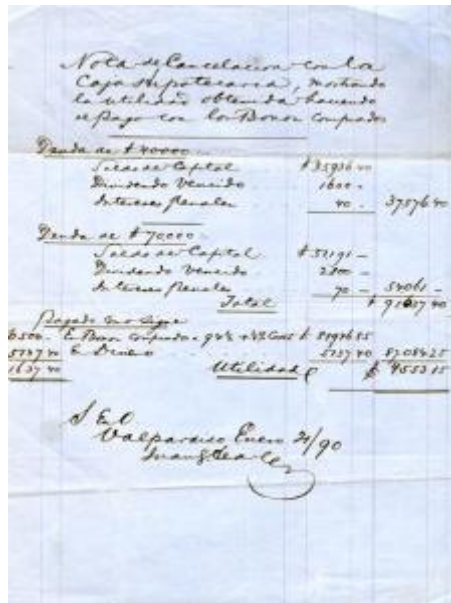 Nota de Cancelacion con la
Caja Hipotecaria, mostrando
la utilidad obtenida haciendo
el pago con los Bonos comprados
Deuda de $40000
Saldo de Capital $35936 40
Dividendo Vencido 1600 -
Intereses Penales 40 - 37576 40
Deuda de $70000
Saldo de Capital $51191 -
Dividendo Vencido 2800 -
Intereses Penales 70 - 54061 -
Total $91637 40
Pagado como sigue
6500 - En Bonos comprados a
5137 40 En Dinero 5137 40
1637 40 Utilidad $4553 15
S. E. O
Valparaiso Enero 21/90